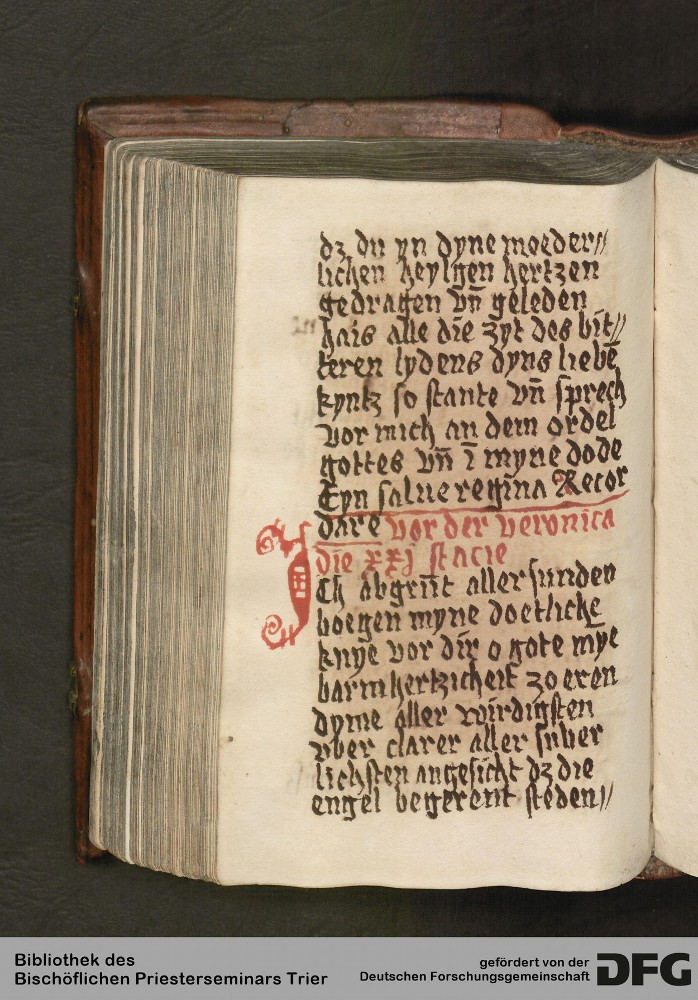 dz du yn dyne moeder//
lichen heylgen hertzen
gedragen vn̄ geleden
hais alle die zyt des bit//
teren lydens dyns liebē
kyntz so stante vn̄ sprech
vor mich an dem ordel
gottes vn̄ ī myne dode
Eyn salue regina Recor
dare vor der veronica
die xxj stacie
Ich abgrūt aller sunden
boegen myne doetlickē
knye vor dir o gote mȳe
barmhertzicheit zo eren
dyme aller wirdigsten
vber clarer aller suber
lichsten angesicht dz die
engel begerent steden//
Bibliothek des
Bischöflichen Priesterseminars Trier
gefördert von der
Deutschen Forschungsgemeinschaft DFG